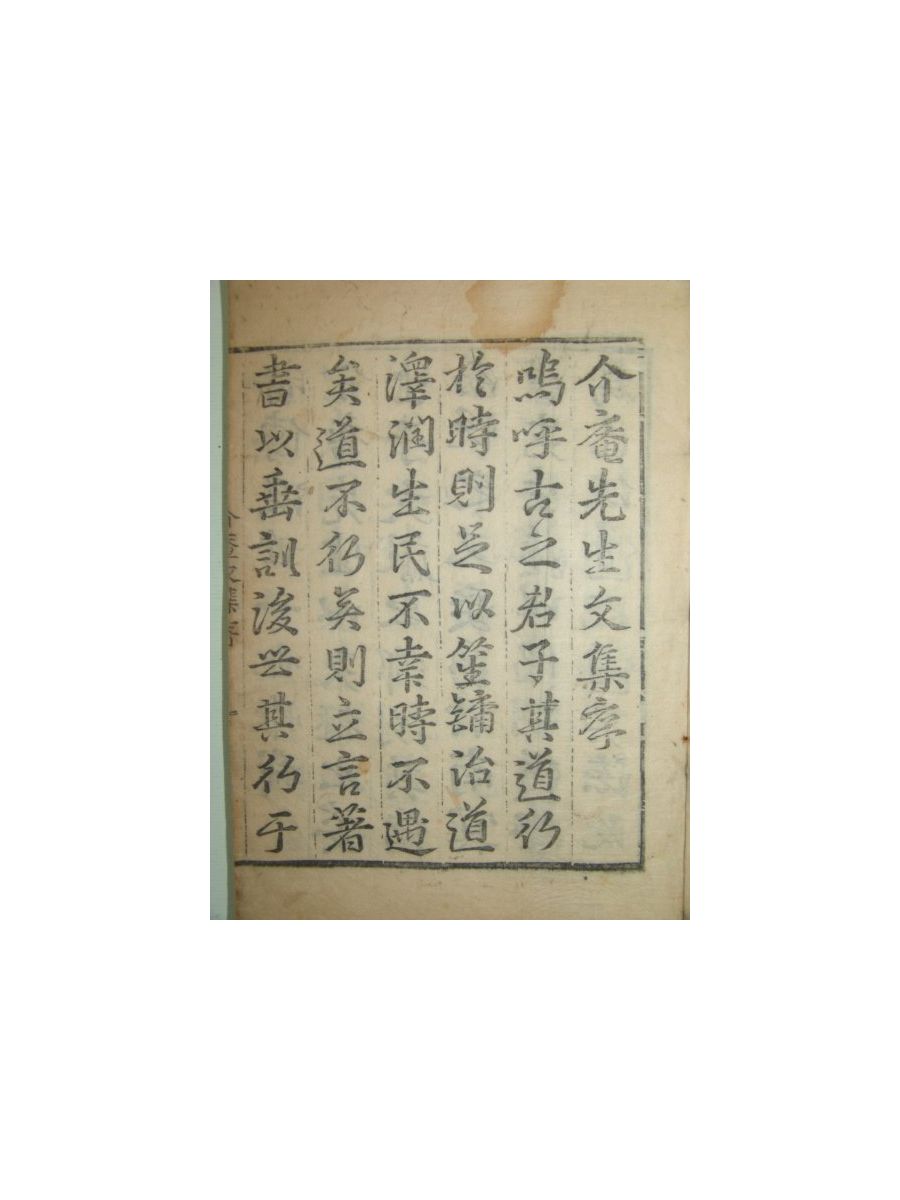 介庵先生文集序
嗚呼古之君子其道行
於時則足以笙鏞治道
澤潤生民不幸時不遇
矣道不行矣則立言著
書以垂訓後世其行于
介庵文集序
一